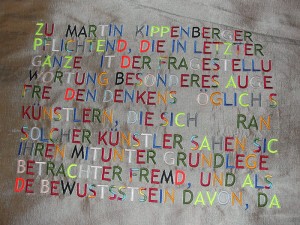 ZU MARTIN KIPPENBERGER
PFLICHTEND, DIE IN LETZTER
GANZE IT DER FRAGESTELLU
WORTUNG BESONDERES AUGE
FRE DEN DENKENS ÖGLICH S
KÜNSTLERN, DIE SICH RAN
SOLCHER KÜNSTLER SAHEN SIC
IHREN MITUNTER GRUNDLEGE
BETRACHTER FREMD, UND ALS
DE BEWUSTSSTSEIN DAVON, DA